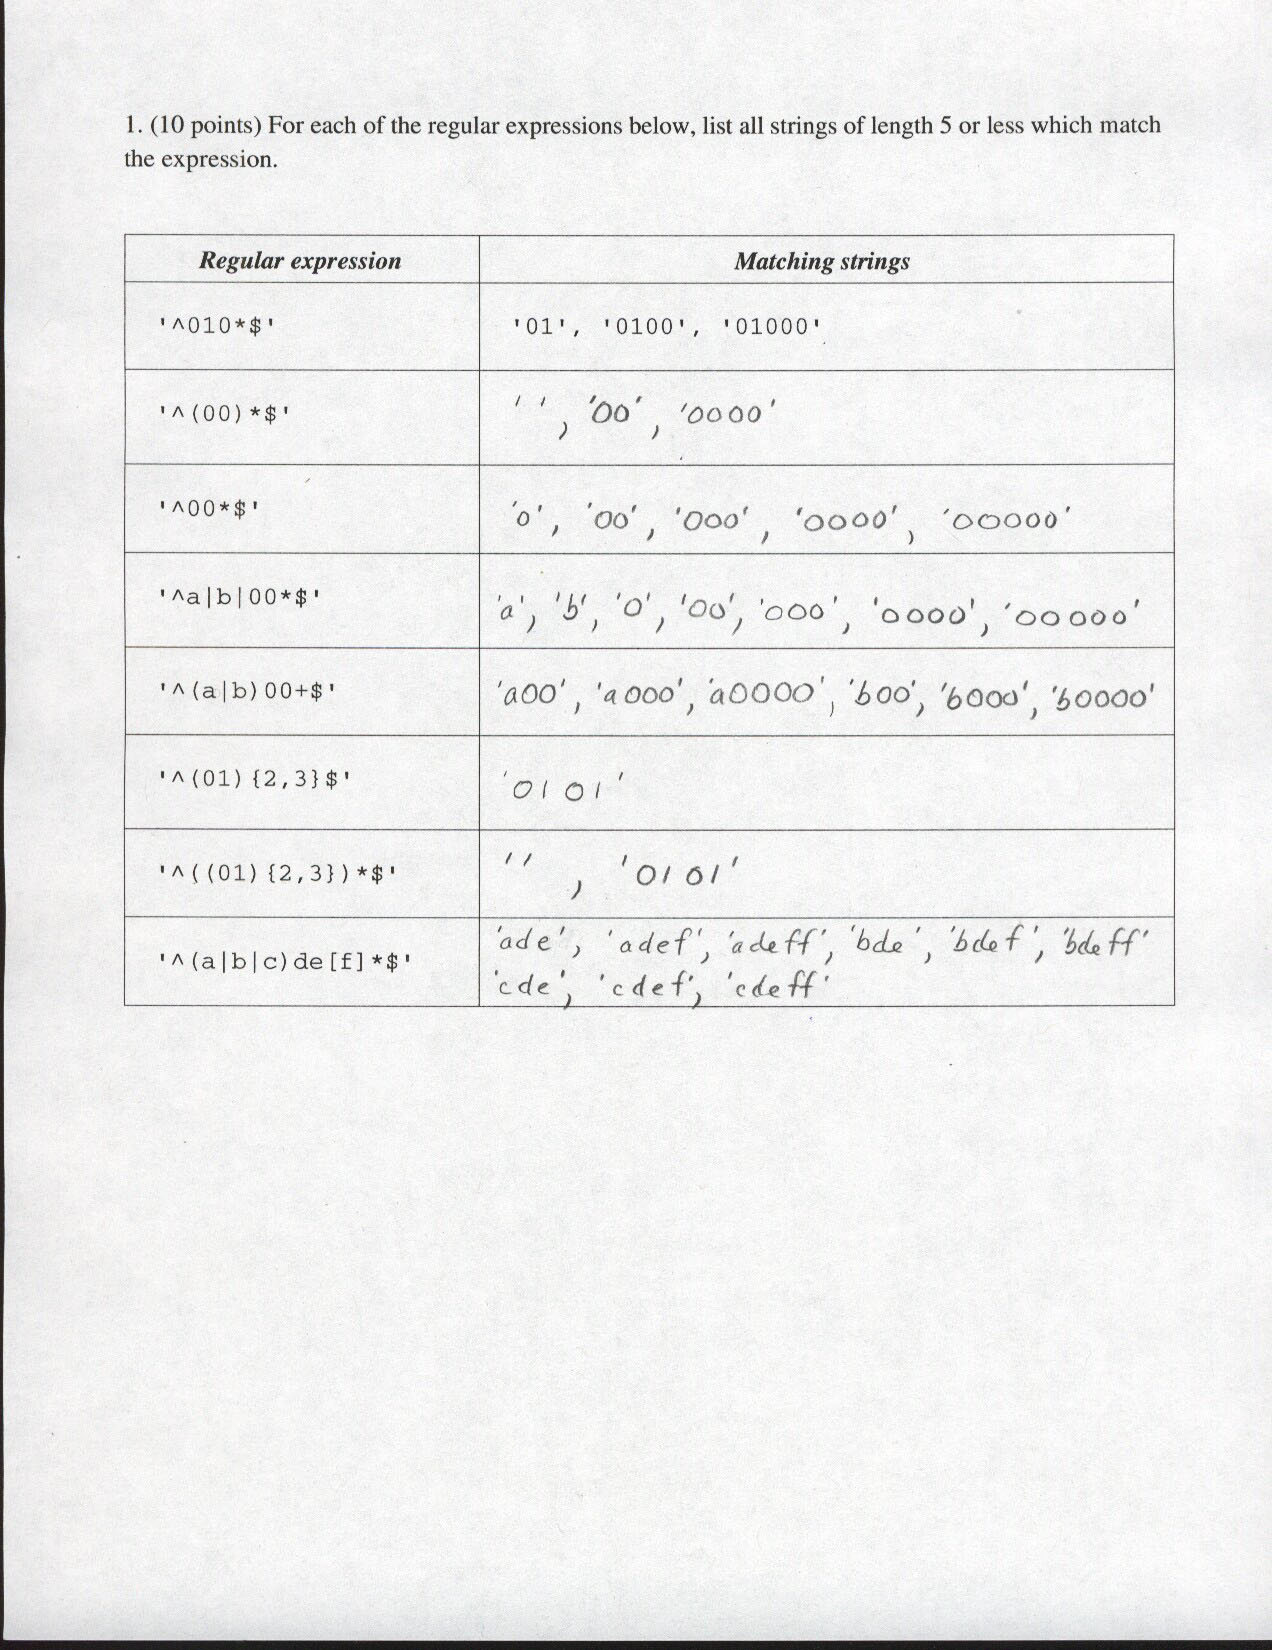 1. (10 points) For each of the regular expressions below, list all strings of length 5 or less which match
the expression.
Regular expression Matching strings
'^010*$' '01', '0100', '01000'
'^(00)*$' '', '00', '0000'
'^00*$' '0', '00', '000', '0000', '00000'
'^a|b|00*$' 'a', 'b', '0', '00', '000', '0000', '00000'
'^(a|b)00+$' 'a00', 'a000', 'a0000', 'b00', 'b000', 'b0000'
'^(01){2,3}$' '0101'
'^((01){2,3})*$' '', '0101'
'^(a|b|c)de[f]*$' 'ade', 'adef', 'adeff', 'bde', 'bdef', 'bdeff'
'cde', 'cdef', 'cdeff'